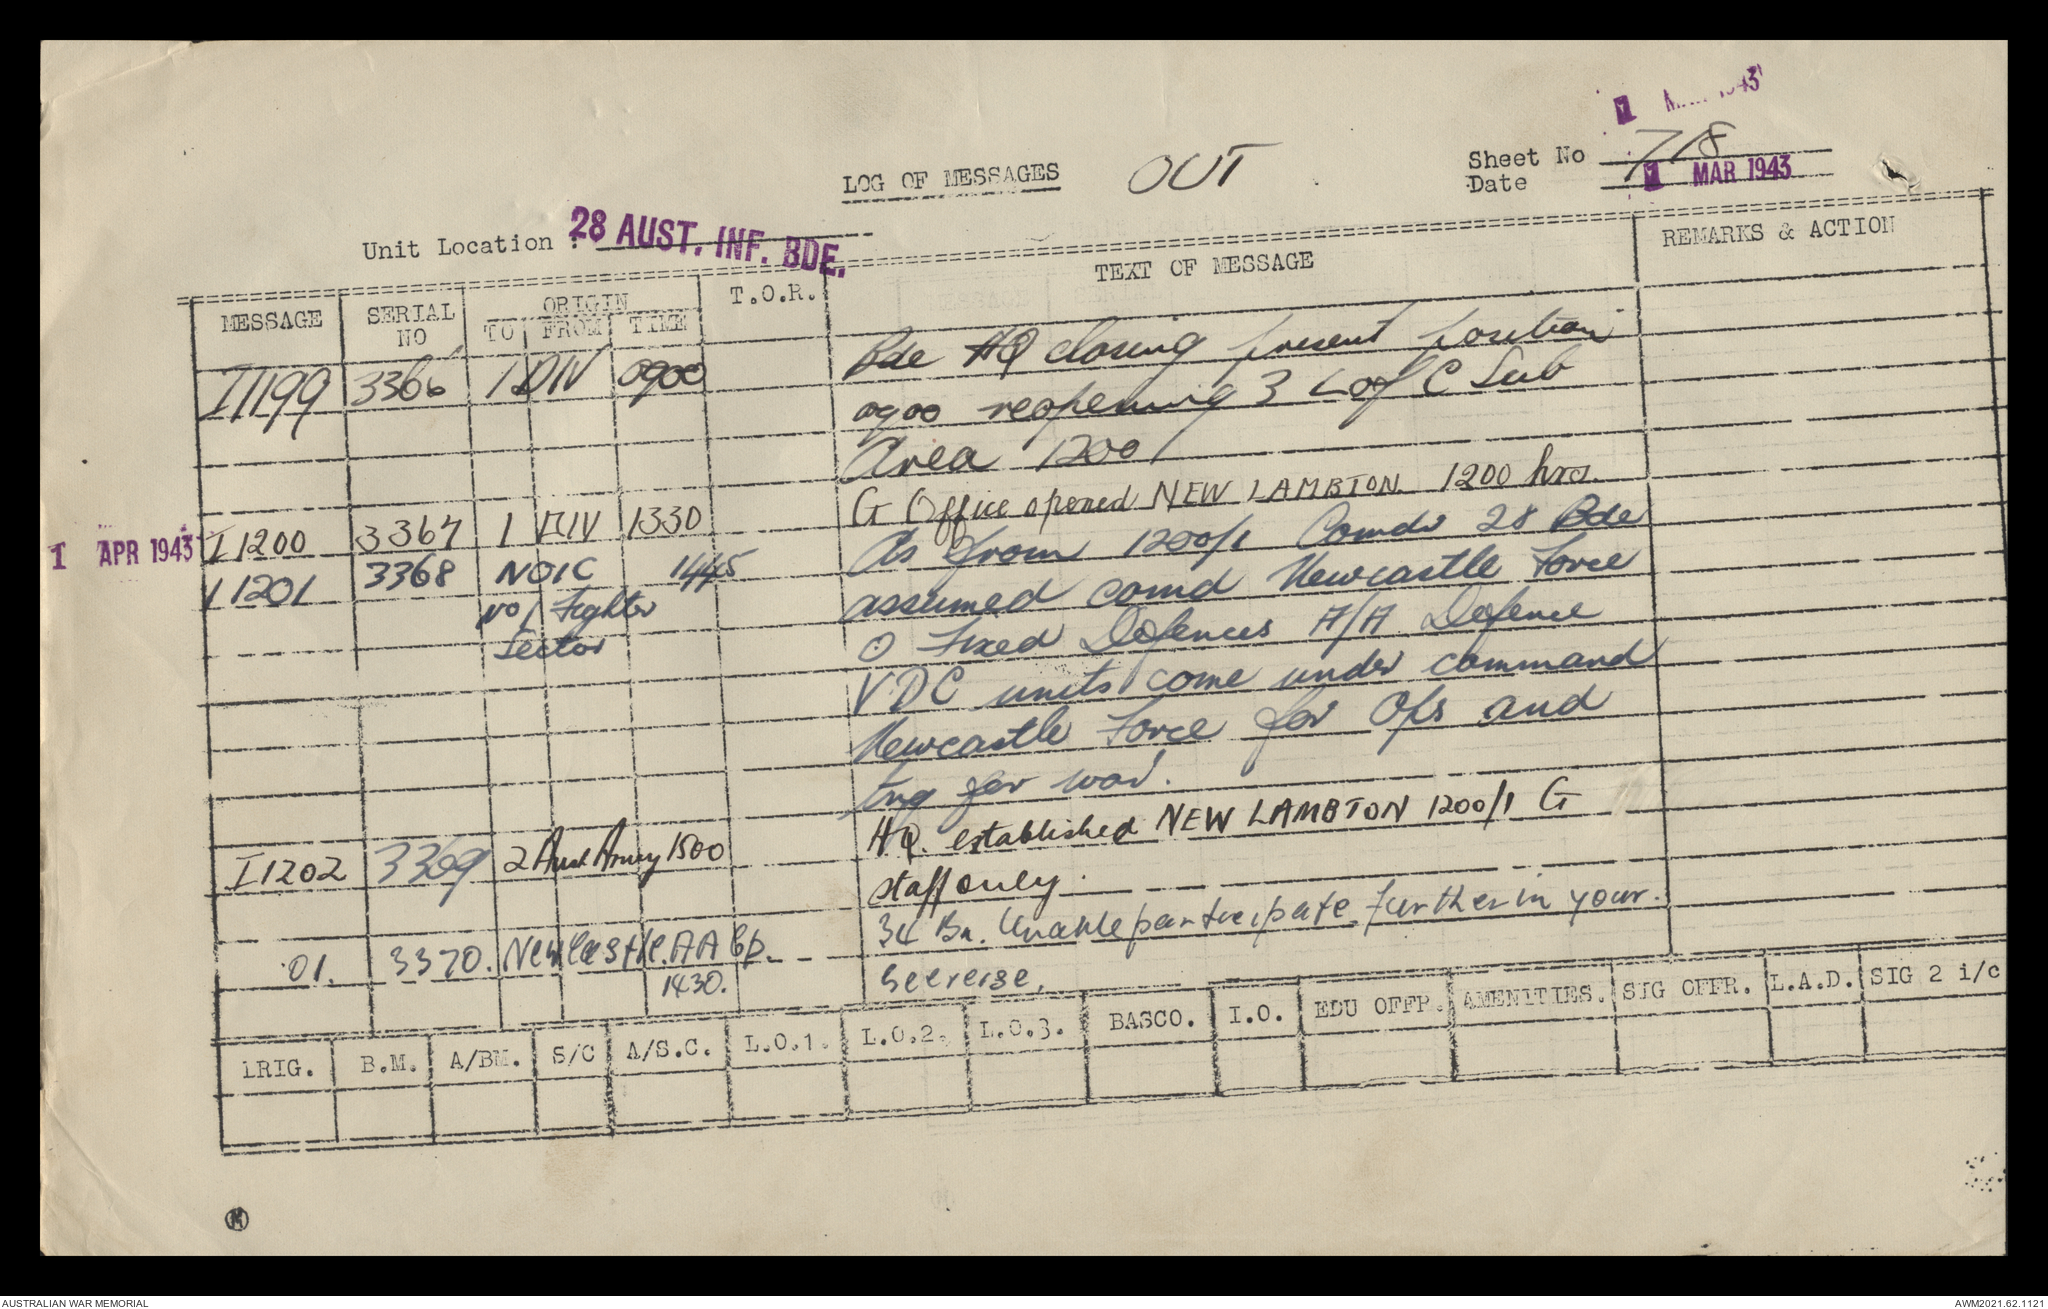 1 MAR 1943
LOG OF MESSAGES OUT
Sheet No 718
Date 1 MAR 1943
Unit Location : 28 AUST. INF. BDE.
MESSAGE SERIAL NO ORIGIN TO FROM TIME T.O.R. TEXT OF MESSAGE REMARKS & ACTION
I1199 3366 1 DIV 0900 Bde HQ closing present position
0900 reopening 3 L of C Sub
Area 1200
1 APR 1943 I1200 3367 1 DIV 1330 G Office opened NEW LAMBTON 1200 hrs.
I1201 3368 NOIC 1445 As from 1200/1 Comdr 28 Bde
No 1 Fighter assumed comd Newcastle Force
Sector O Fixed Defences A/A Defence
VDC units come under command
Newcastle Force for Ops and
Trg for war.
I1202 3369 2 Aust Army 1500 HQ. established NEW LAMBTON 1200/1 G
staff only.
01. 3370. Newcastle. AA Gp. 34 Bn. Unable participate further in your.
1430. exercise.
1RIG. B.M. A/BM. S/C A/S.C. L.O.1. L.O.2. L.O.3. BASCO. I.O. EDU OFFR. AMENITIES. SIG OFFR. L.A.D. SIG 2 i/c
M
AUSTRALIAN WAR MEMORIAL
AWM2021.62.1121